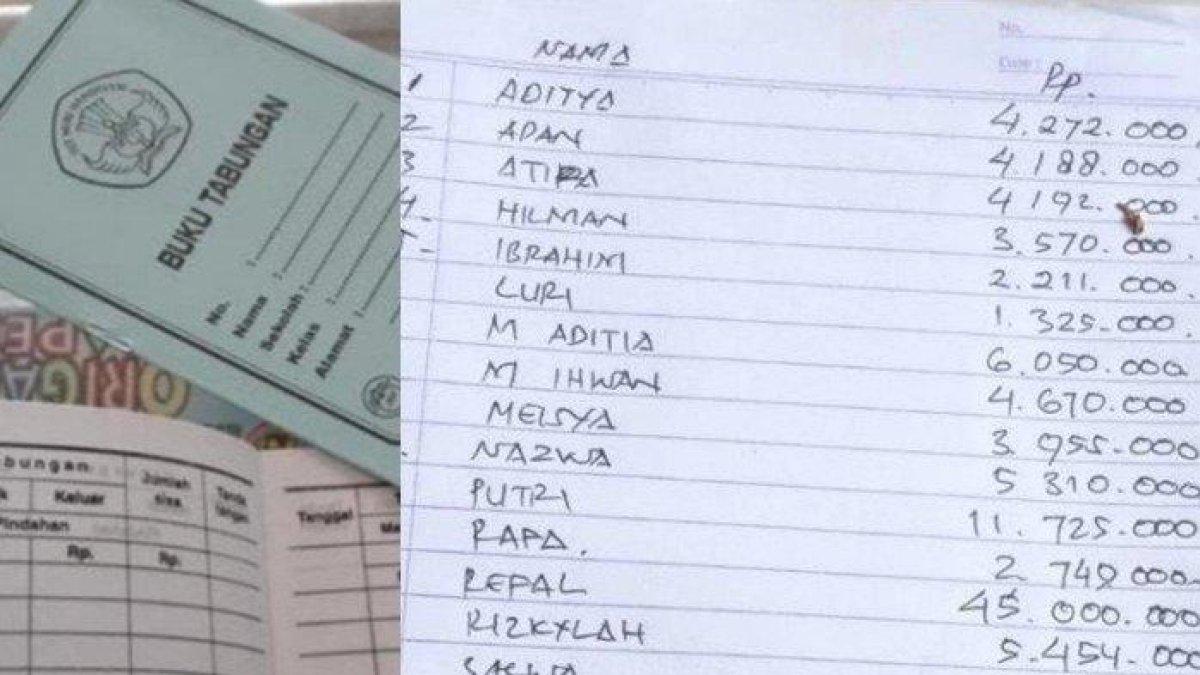 BUKU TABUNGAN
No.
Nama :
Sekolah :
Kelas :
Alamat :
ORIGA
bungan
Jumlah sisa
Tanda
Keluar
Pindahan
Rp. Rp.
Tanggal
No.
NAMA Rp.
1 ADITYA 4.272.000
2 ADAN 4.188.000
3 ATIPA 4.192.000
4 HILMAN 3.570.000
5 IBRAHIM 2.211.000
LURI 1.325.000
M ADITIA 6.050.000
M IHWAN 4.670.000
MELSYA 3.955.000
NAZWA 5.310.000
PUTRI 11.725.000
RAPA. 2.749.000
REPAL 45.000.000
RIZKYLAH 5.454.000